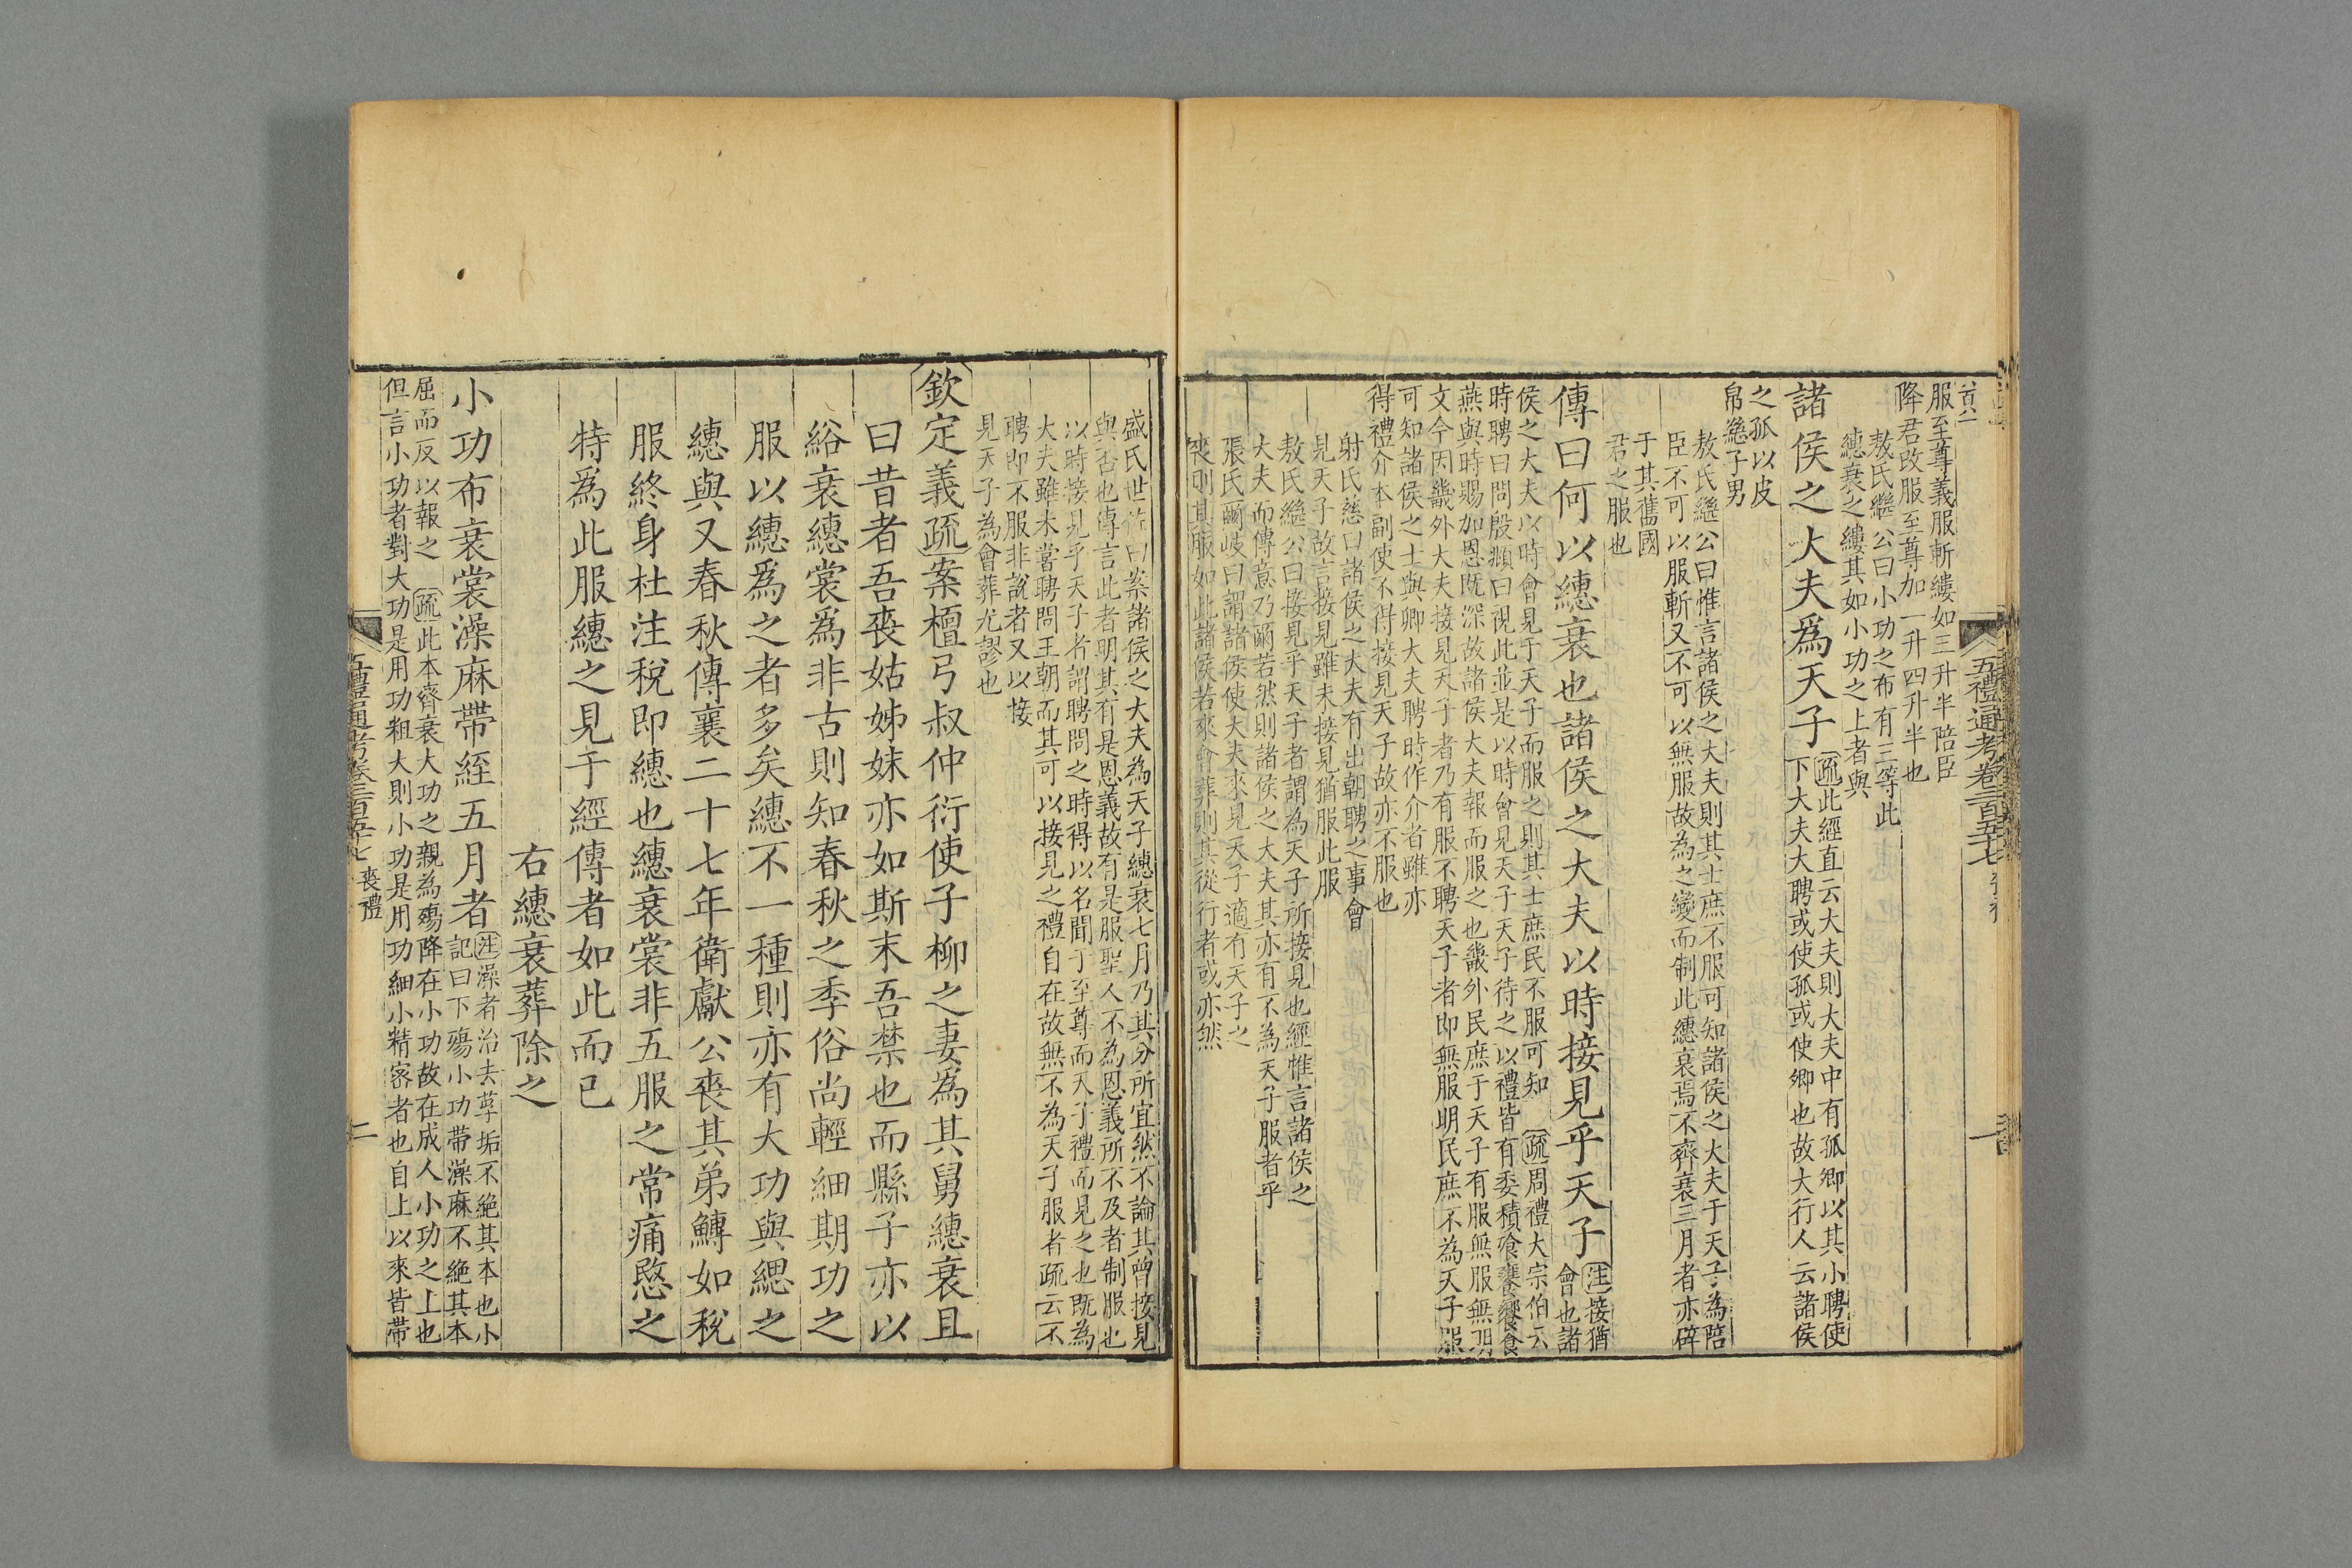 五禮通考卷二百五十七
一
服至尊義服斬縷如三升半陪臣
降君改服至尊加一升四升半也
敖氏繼公曰小功之布有三等此
繐衰之縷其如小功之上者與
諸侯之大夫爲天子
疏此經直云大夫則大夫中有孤卿以其小聘使
下大夫大聘或使孤或使卿也故大行人云諸侯
之孤以皮
帛繼子男
敖氏繼公曰惟言諸侯之大夫則其士庶不服可知諸侯之大夫于天子為陪
臣不可以服斬又不可以無服故為之變而制此繐衰焉不齊衰三月者亦辟
于其舊國
君之服也
傳曰何以繐衰也諸侯之大夫以時接見乎天子
注接猶
會也諸
侯之大夫以時會見于天子而服之則其士庶民不服可知 疏周禮大宗伯云
時聘曰問殷頫曰視此並是以時會見天子天子待之以禮皆有委積飧饔饗食
燕與時賜加恩既深故諸侯大夫報而服之也畿外民庶于天子有服無服無明
文今因畿外大夫接見天子者乃有服不聘天子者即無服明民庶不為天子服
可知諸侯之士與卿大夫聘時作介者雖亦
得禮介本副使不得接見天子故亦不服也
射氏慈曰諸侯之大夫有出朝聘之事會
見天子故言接見雖未接見猶服此服
敖氏繼公曰接見乎天子者謂為天子所接見也經惟言諸侯之
大夫而傳意乃爾若然則諸侯之大夫其亦有不為天子服者乎
張氏爾岐曰謂諸侯使大夫來見天子適有天子之
喪則其服如此諸侯若來會葬則其從行者或亦然
盛氏世佐曰案諸侯之大夫為天子繐衰七月乃其分所宜然不論其曾接見
與否也傳言此者明其有是恩義故有是服聖人不為恩義所不及者制服也
以時接見乎天子者謂聘問之時得以名聞于至尊而天子禮而見之也既為
大夫雖未嘗聘問王朝而其可以接見之禮自在故無不為天子服者疏云不
聘即不服非說者又以接
見天子為會葬尤謬也
欽定義疏案檀弓叔仲衍使子柳之妻為其舅繐衰且
曰昔者吾喪姑姊妹亦如斯末吾禁也而縣子亦以
綌衰繐裳爲非古則知春秋之季俗尚輕細期功之
服以繐爲之者多矣繐不一種則亦有大功與緦之
繐與又春秋傳襄二十七年衛獻公喪其弟鱄如稅
服終身杜注稅即繐也繐衰裳非五服之常痛愍之
特爲此服繐之見于經傳者如此而已
右繐衰葬除之
小功布衰裳澡麻帶絰五月者
注澡者治去莩垢不絶其本也小
記曰下殤小功帶澡麻不絶其本
屈而反以報之 疏此本齊衰大功之親為殤降在小功故在成人小功之上也
但言小功者對大功是用功粗大則小功是用功細小精密者也自上以來皆帶
五禮通考卷二百五十七 喪禮
二